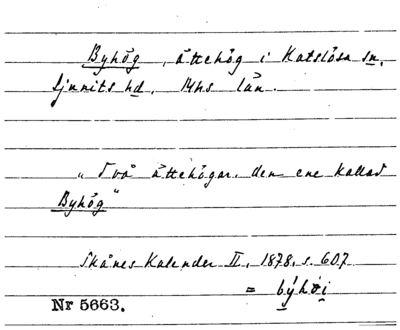 Byhög, ättehög i Katslösa sn,
Ljunits hd, Mhs län.
"Två ättehögar, den ene kallad
Byhög"
Skånes Kalender II, 1878, s. 607
= býhöi
Nr 5663.